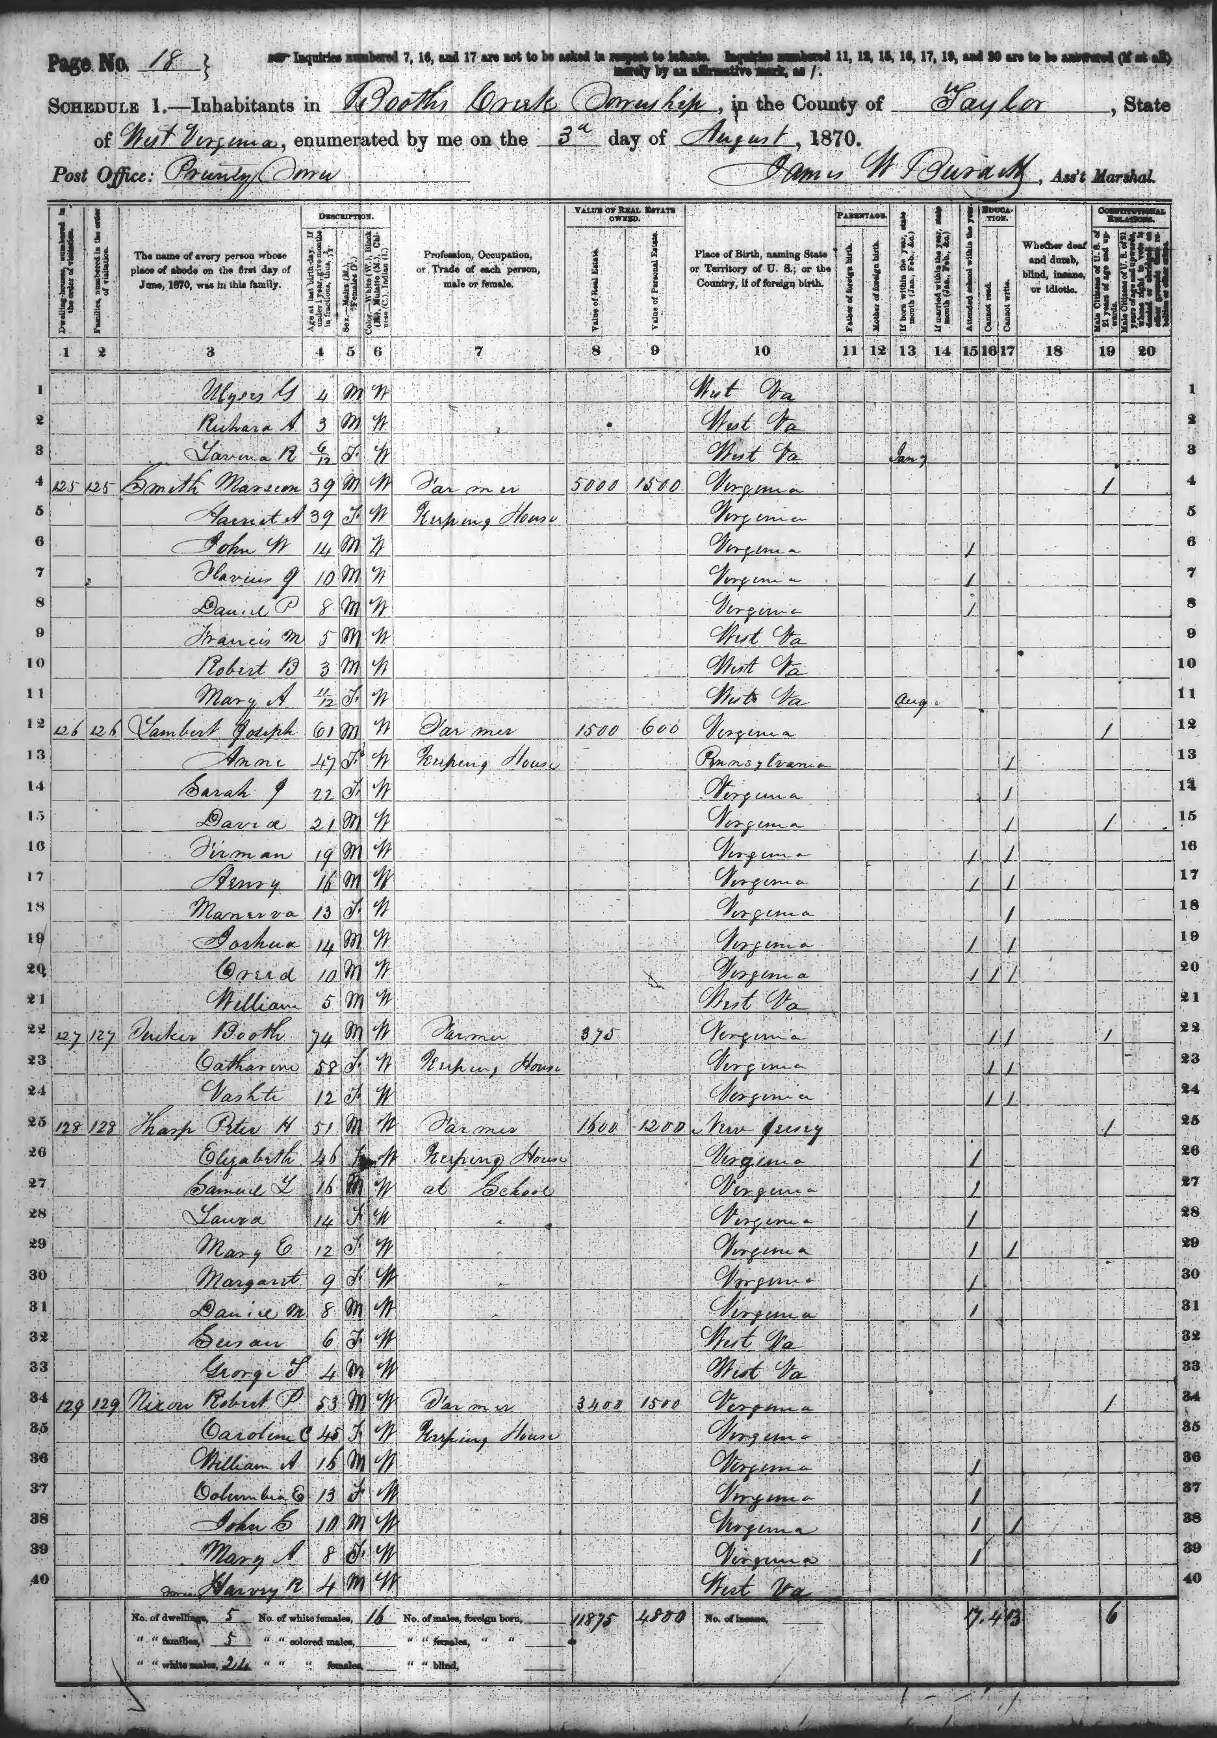 Page No. 18 }
Inquiries numbered 7, 16, and 17 are not to be asked in respect to infants. Inquiries numbered 11, 12, 15, 16, 17, 19, and 20 are to be answered (if at all)
merely by an affirmative mark, as /.
SCHEDULE 1.—Inhabitants in Booths Creek Township, in the County of Taylor, State
of West Virginia, enumerated by me on the 3d day of August, 1870.
Post Office: Pruntytown James W Burdett, Ass't Marshal.
DESCRIPTION. VALUE OF REAL ESTATE OWNED. PARENTAGE. EDUCATION. CONSTITUTIONAL RELATIONS.
Dwelling-houses, numbered in the order of visitation.
Families, numbered in the order of visitation.
The name of every person whose place of abode on the first day of June, 1870, was in this family.
Age at last birth-day. If under 1 year, give months in fractions, thus, 3/12
Sex.—Males (M.), Females (F.)
Color.—White (W.), Black (B.), Mulatto (M.), Chinese (C.), Indian (I.)
Profession, Occupation, or Trade of each person, male or female.
Value of Real Estate.
Value of Personal Estate.
Place of Birth, naming State or Territory of U. S.; or the Country, if of foreign birth.
Father of foreign birth.
Mother of foreign birth.
If born within the year, state month (Jan. Feb., &c.)
If married within the year, state month (Jan. Feb., &c.)
Attended school within the year.
Cannot read.
Cannot write.
Whether deaf and dumb, blind, insane, or idiotic.
Male Citizens of U. S. of 21 years of age and upwards.
1 2 3 4 5 6 7 8 9 10 11 12 13 14 15 16 17 18 19 20
1 Ulyses G 4 M W West Va 1
2 Richard A 3 M W West Va 2
3 Lavina R 6/12 F W West Va Jany 3
4 125 125 Smith Marion 39 M W Farmer 5000 1500 Virginia 1 4
5 Harriet A 39 F W Keeping House Virginia 5
6 John W 14 M W Virginia 1 6
7 Flavius J 10 M W Virginia 1 7
8 Daniel P 8 M W Virginia 1 8
9 Francis M 5 M W West Va 9
10 Robert B 3 M W West Va 10
11 Mary A 11/12 F W West Va Aug. 11
12 126 126 Lambert Joseph 61 M W Farmer 1500 600 Virginia 1 12
13 Anne 47 F W Keeping House Pennsylvania 1 13
14 Sarah J 22 F W Virginia 1 14
15 David 21 M W Virginia 1 1 15
16 Firman 19 M W Virginia 1 1 16
17 Henry 16 M W Virginia 1 1 17
18 Manerva 13 F W Virginia 1 18
19 Joshua 14 M W Virginia 1 1 19
20 Creed 10 M W Virginia 1 1 1 20
21 William 5 M W West Va 21
22 127 127 Tucker Booth 74 M W Farmer 375 Virginia 1 1 1 22
23 Catharine 58 F W Keeping House Virginia 1 1 23
24 Vashti 12 F W Virginia 1 1 24
25 128 128 Tharp Peter H 51 M W Farmer 1600 1200 New Jersey 1 25
26 Elizabeth 46 F W Keeping House Virginia 1 26
27 Samuel L 16 M W at School Virginia 1 27
28 Laura 14 F W " Virginia 1 28
29 Mary E 12 F W Virginia 1 1 29
30 Margaret 9 F W " Virginia 1 30
31 Daniel M 8 M W " Virginia 1 31
32 Susan 6 F W West Va 32
33 George F 4 M W West Va 33
34 129 129 Nixon Robert P 53 M W Farmer 3400 1500 Virginia 1 34
35 Caroline C 45 F W Keeping House Virginia 35
36 William A 16 M W Virginia 1 36
37 Columbia E 13 F W Virginia 1 37
38 John C 10 M W Virginia 1 1 38
39 Mary A 8 F W Virginia 1 39
40 Harvey R 4 M W West Va 40
No. of dwellings, 5 No. of white females, 16 No. of males, foreign born, 11875 4800 No. of insane, 17 4 13 6
" " families, 5 " " colored males, " " females, " "
" " white males, 24 " " " females, " " blind,